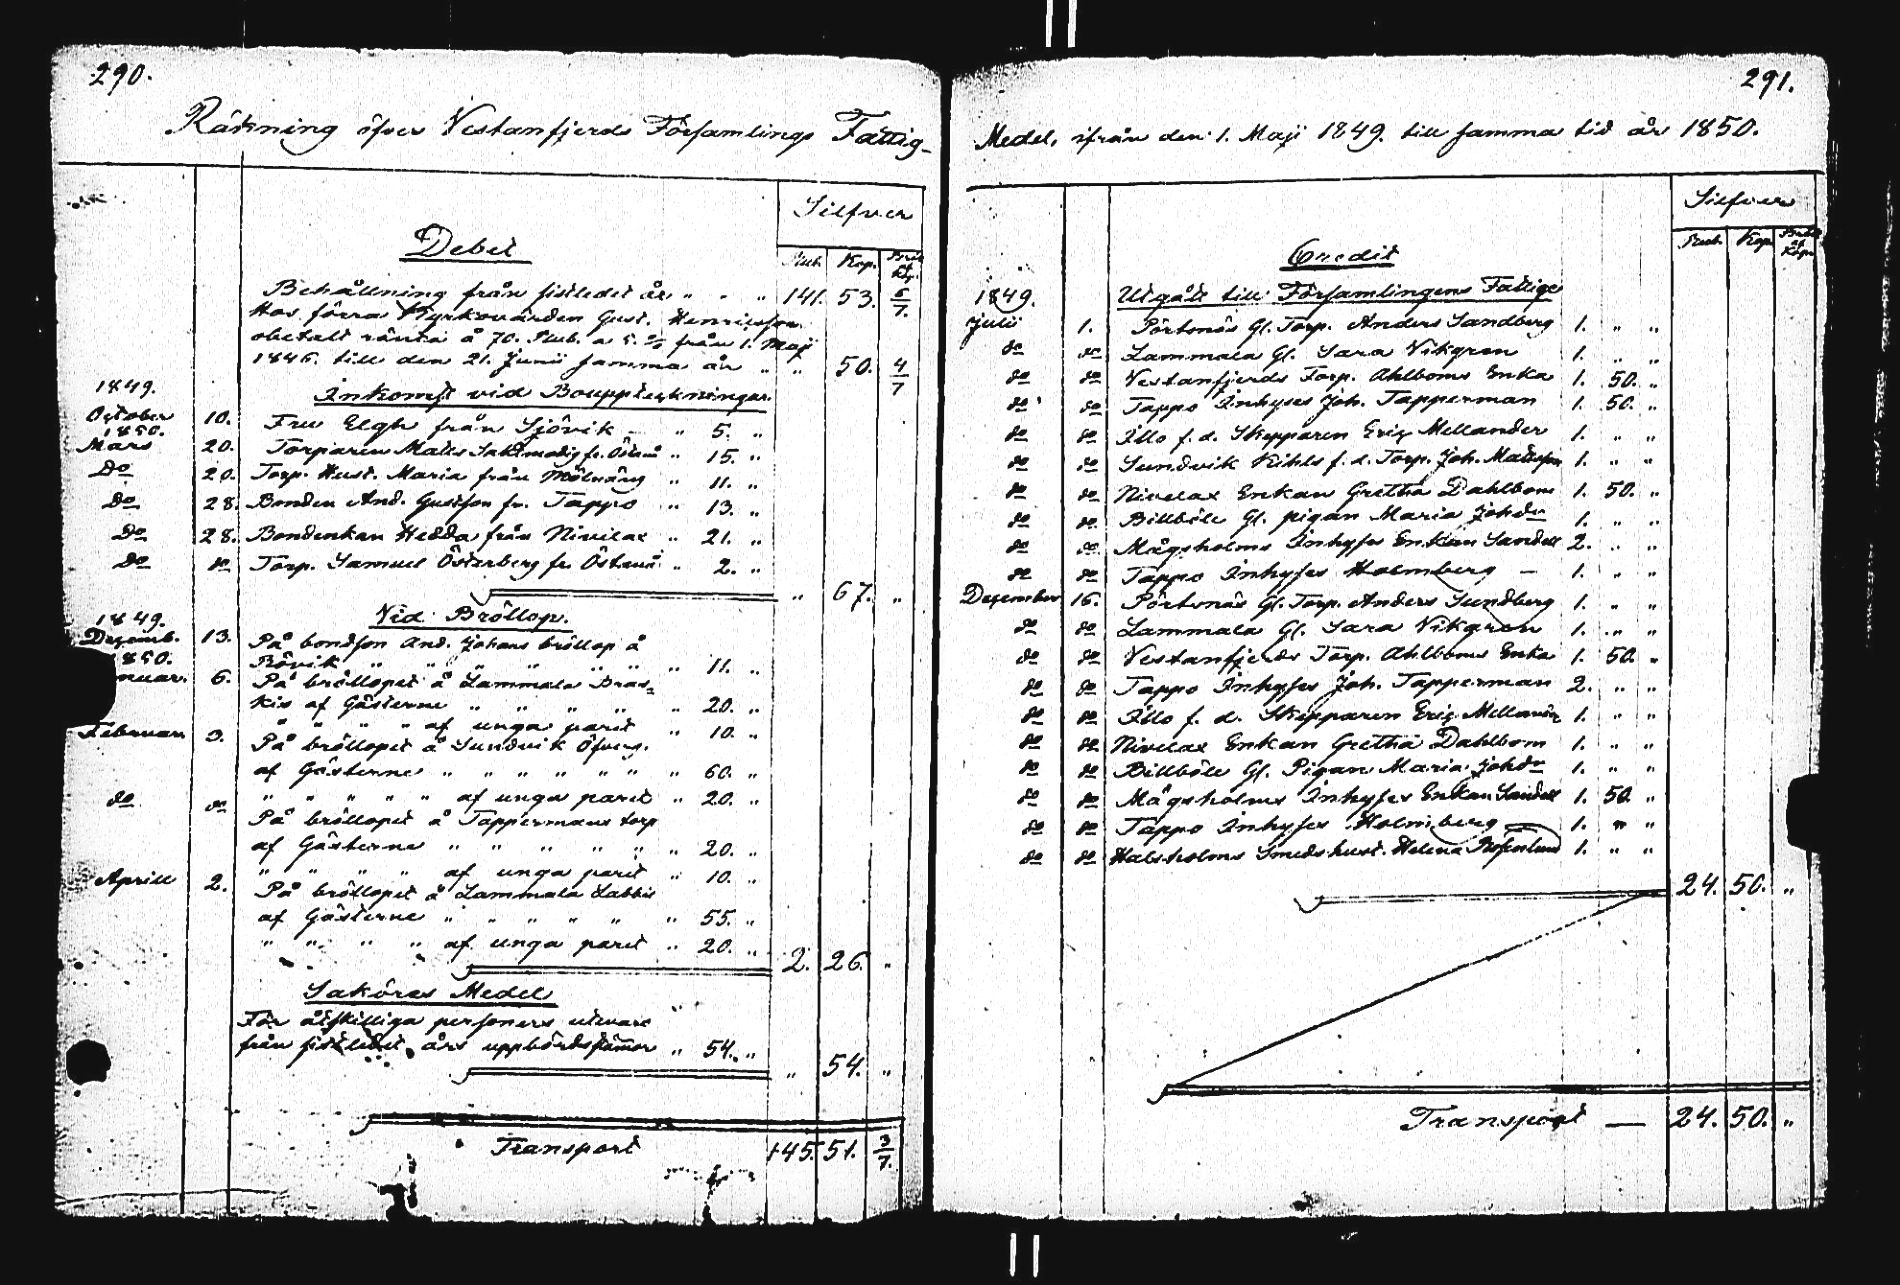 290.
Räkning öfver Vestanfjerds Församlings Fattig-
Silfver
Debet
Rub. Kop. Bråk af Kop.
Behållning från sistledet år " " " 141. 53. 6/7.
Hos förra Kyrkovärden Gust. Henricsson
obetalt ränta å 70. Rub. a 5. % från 1. Maji
1846. till den 21. Junii samma år " " 50. 4/7
1849.
Inkomst vid Bouppteckningar.
October 10. Fru Elgh från Sjövik — " 5. "
1850.
Mars 20. Torparen Matts Saktmodig fr. Östanå " 15. "
Do 20. Torp. Hust. Maria från Mölnäng " 11. "
do 28. Bonden And. Gustfson fr. Tappo " 13. "
do 28. Bondenkan Hedda från Nivelax " 21. "
do do Torp. Samuel Österberg fr. Östanå " 2. "
" 67. "
1849.
Vid Bröllop.
Dezemb. 13. På bondson And. Johans bröllop å
1850.
Bövik " " " " " " " 11. "
nuar. 6. På bröllopet å Lammala Bras-
kis af Gästerne " " " " " 20. "
" " " " af unga paret " 10. "
Februari 3. På bröllopet å Sundvik Öfverg.
af Gästerne " " " " " " 60. "
" " " " " af unga paret " 20. "
do do På bröllopet å Tappermans torp
af Gästerne " " " " " " 20. "
" " " " af unga paret " 10. "
Aprill 2. På bröllopet å Lammala Labbis
af Gästerne " " " " " " 55. "
" " " " af unga paret " 20. "
2. 26. "
Saköres Medel
För åtskilliga personers utevaro
från sistledet års uppbördsstämmor " 54. "
" 54. "
Transport 145. 51. 3/7.
291.
Medel, ifrån den 1. Maji 1849. till samma tid år 1850.
Silfver
Credit
Rub. Kop. Bråk af Kop.
1849. Utgått till Församlingens Fattige
Julii 1. Pörtsnäs Gl. Torp. Anders Sandberg 1. " "
do do Lammala Gl. Sara Vikgren 1. " "
do do Vestanfjerds Torp. Ahlboms Enka 1. 50. "
do do Tappo Inhyses Joh. Tapperman 1. 50. "
do do Illo f. d. Skepparen Eric Mellander 1. " "
do do Sundvik Kihls f. d. Torp. Joh. Mattsson 1. " "
do do Nivelax Enkan Gretha Dahlbom 1. 50. "
do do Billböle Gl. pigan Maria Johdr 1. " "
do do Mågsholms Inhyses Enkan Sandell 2. " "
do do Tappo Inhyses Holmberg — 1. " "
Dezember 16. Pörtsnäs Gl. Torp. Anders Sundberg 1. " "
do do Lammala Gl. Sara Vikgren 1. " "
do do Vestanfjerds Torp. Ahlboms Enka 1. 50. "
do do Tappo Inhyses Joh. Tapperman 2. " "
do do Illo f. d. Skepparen Eric Mellander 1. " "
do do Nivelax Enkan Gretha Dahlbom 1. " "
do do Billböle Gl. Pigan Maria Johdr 1. " "
do do Mågsholms Inhyses Enkan Sandell 1. 50. "
do do Tappo Inhyses Holmberg — 1. " "
do do Halsholms Smedshust. Helena Rosenlund 1. " "
24. 50. "
Transport — 24. 50. "